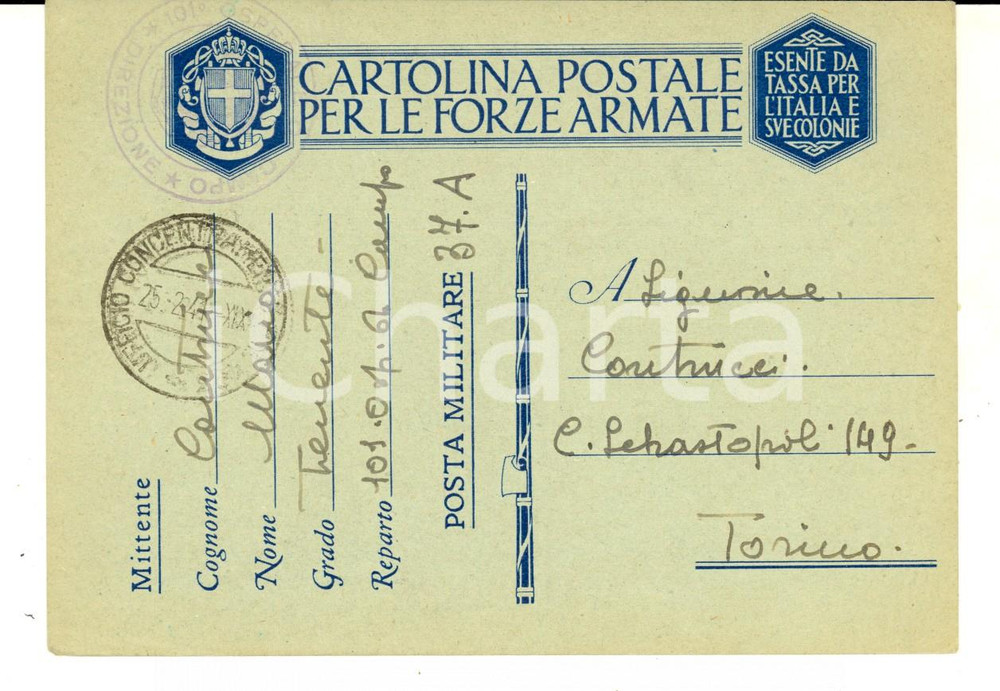 CARTOLINA POSTALE
PER LE FORZE ARMATE
ESENTE DA
TASSA PER
L'ITALIA E
SVE COLONIE
101° OSPE CAMPO
★ DIREZIONE ★
UFFICIO CONCENTRAMEN
25.2.41-XIX
Mittente
Cognome
Nome Mario
Grado Tenente -
Reparto 101. Osp. da Campo
POSTA MILITARE 37.A
A Signorine
Contrucci.
C. Sebastopoli 149-
Torino.
Charta